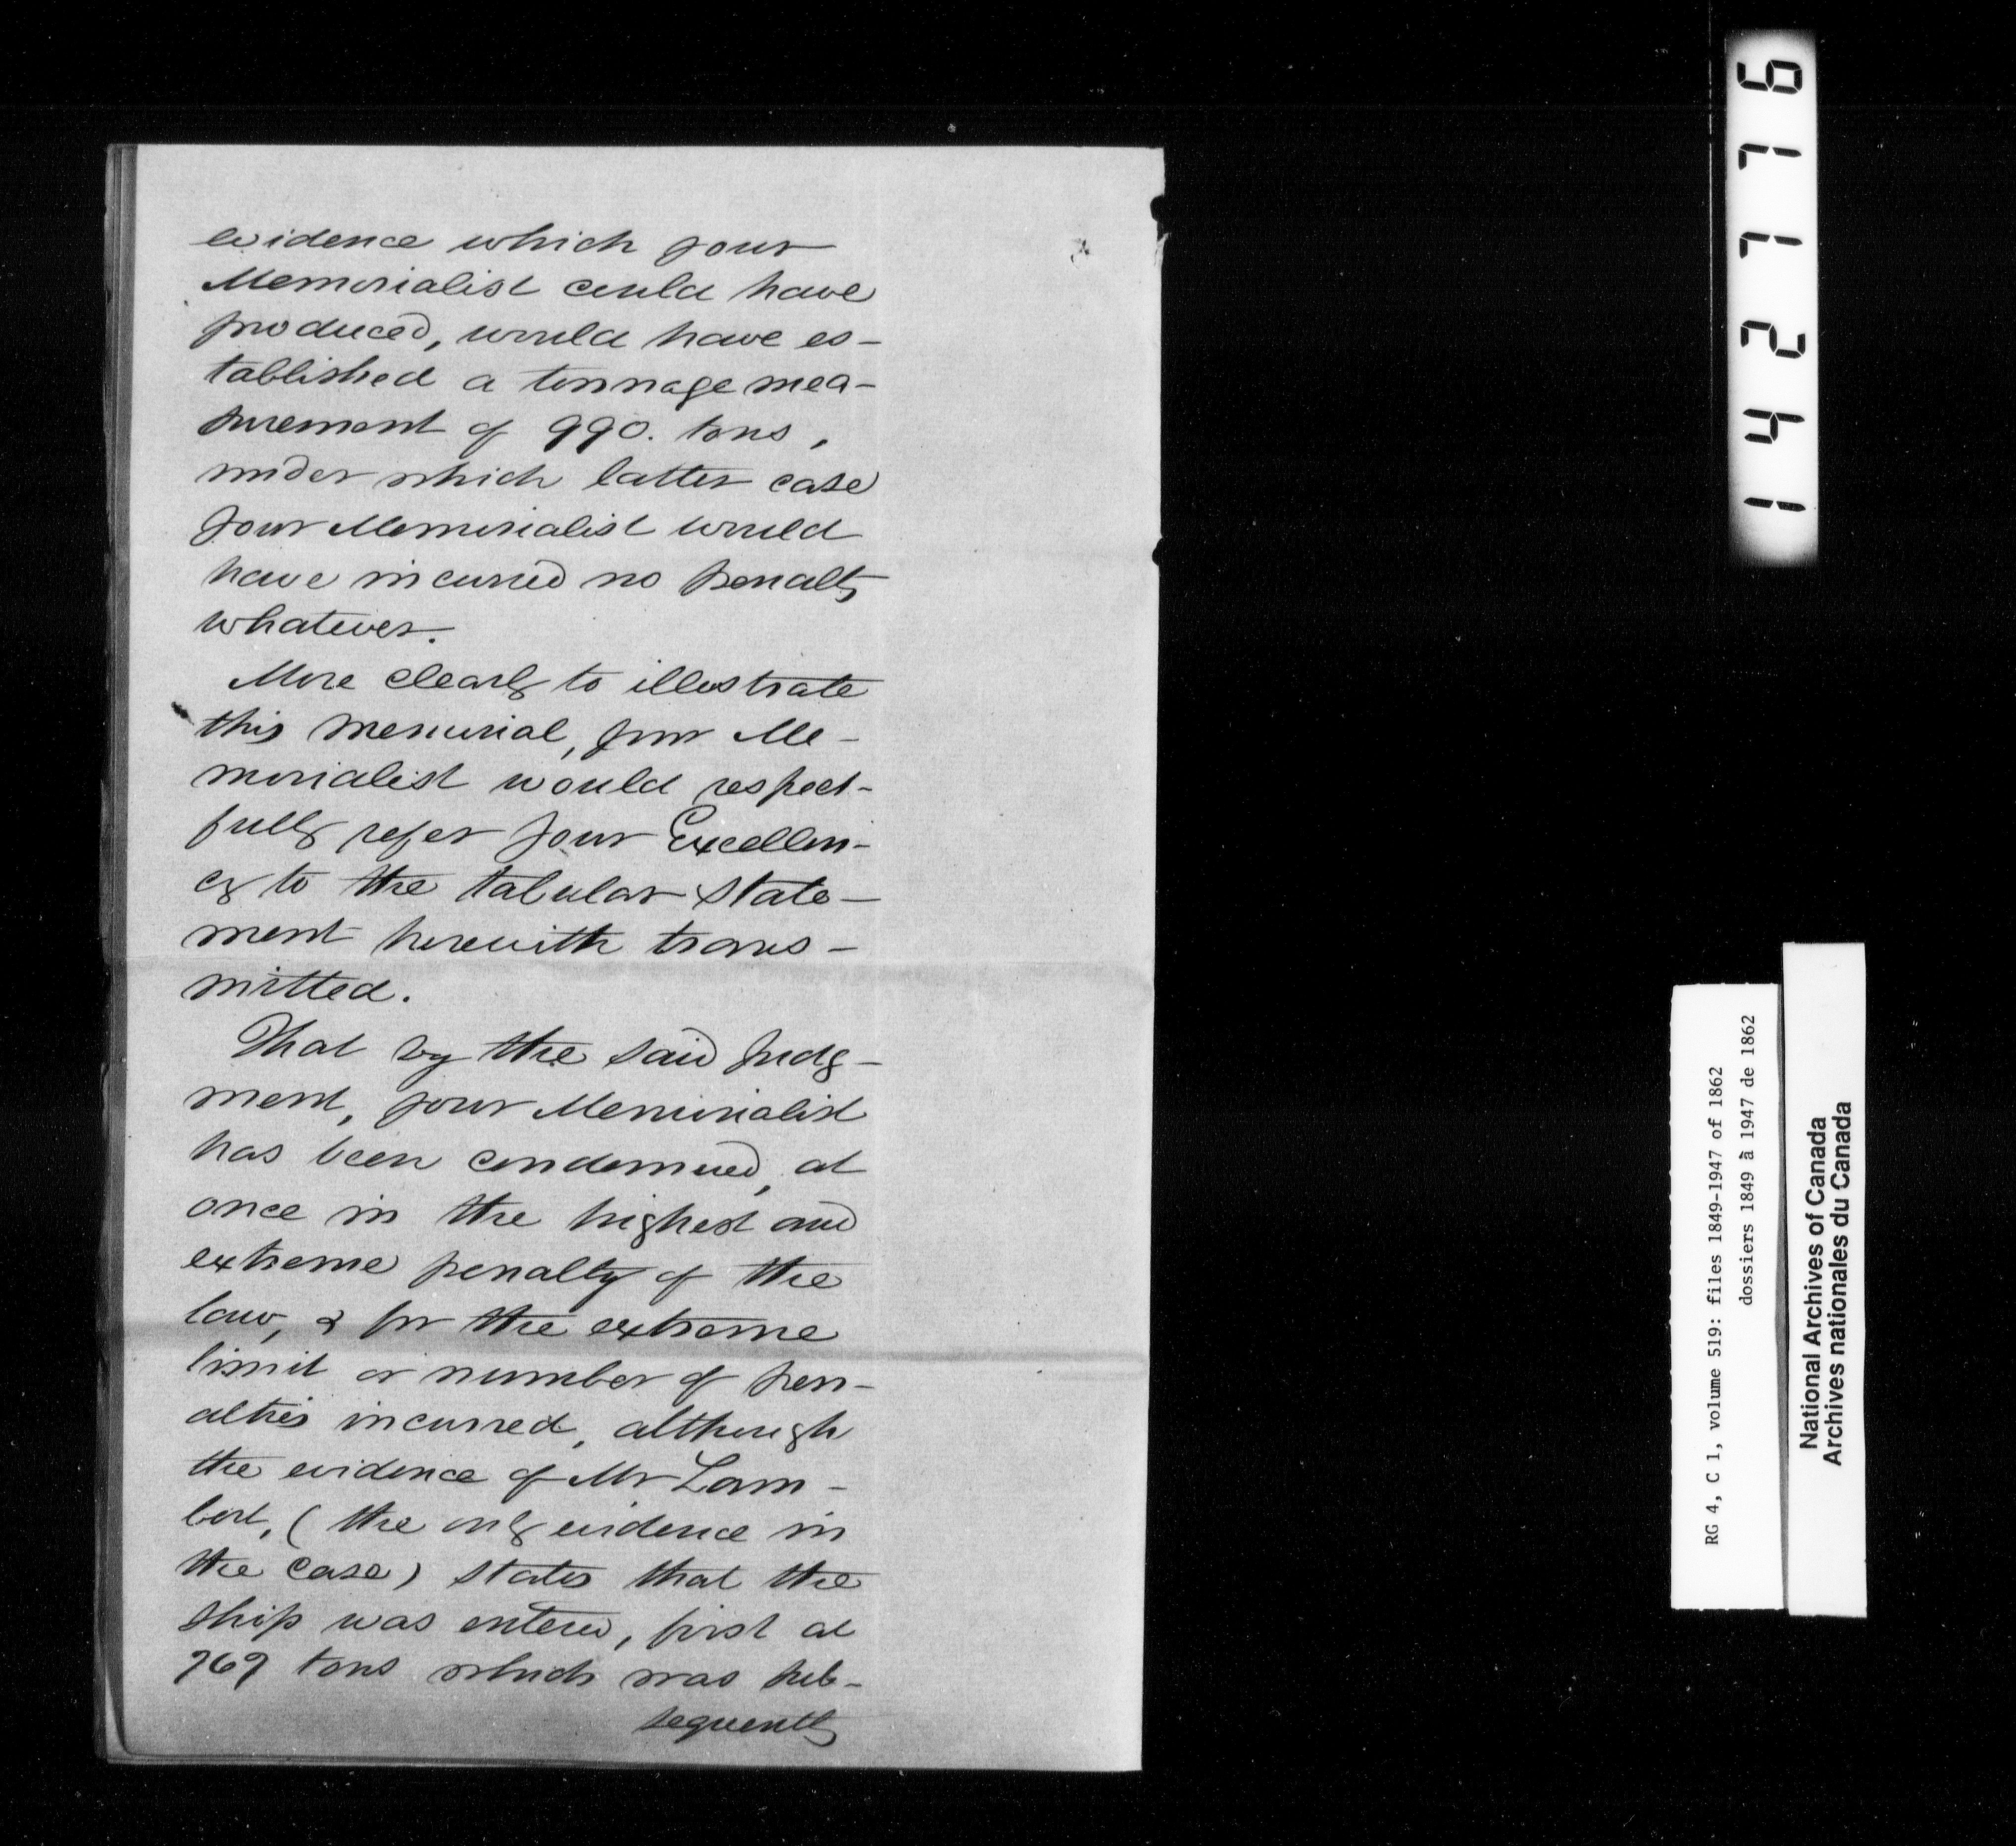 evidence which your
Memorialist could have
produced, would have es-
tablished a tonnage mea-
surement of 990. tons,
under which latter case
your Memorialist would
have incurred no penalty
whatever.
More clearly to illustrate
this memorial, your Me-
morialist would respect-
fully refer your Excellen-
cy to the tabular state-
ment herewith trans-
mitted.
That by the said Judg-
ment, your Memorialist
has been condemned, at
once in the highest and
extreme penalty of the
law, & for the extreme
limit or number of pen-
alties incurred, although
the evidence of Mr Lam-
bert, (the only evidence in
the case) states that the
ship was entered, first at
969 tons which was sub-
sequently
142776
RG 4, C 1, volume 519: files 1849-1947 of 1862
dossiers 1849 à 1947 de 1862
National Archives of Canada
Archives nationales du Canada